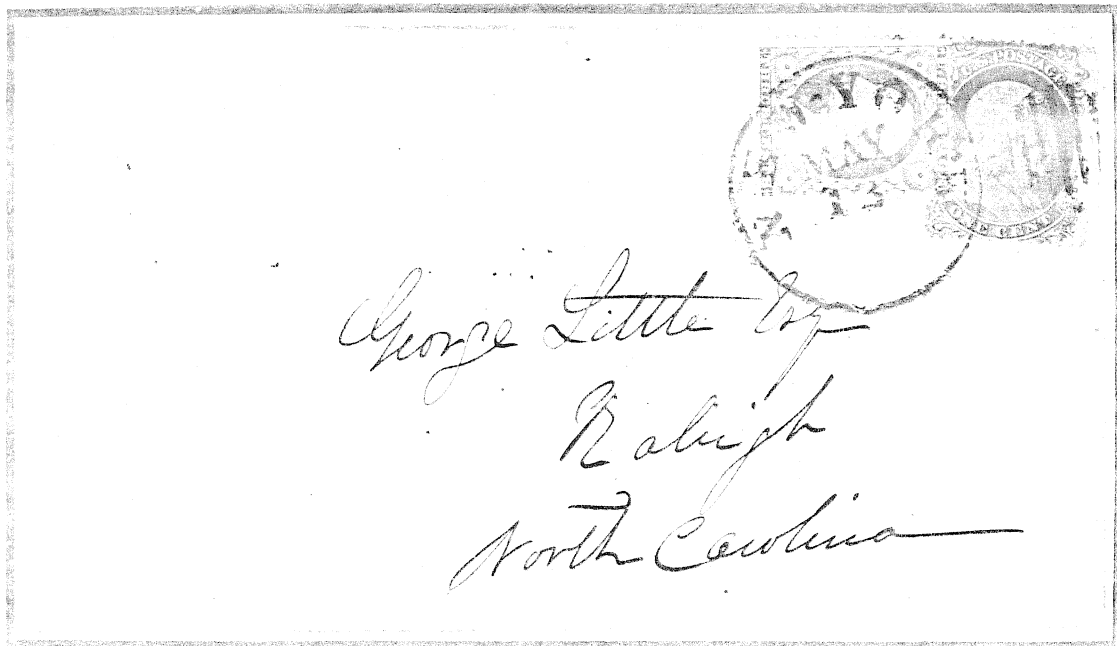 MAY
13
George Little Esq
Raleigh
North Carolina